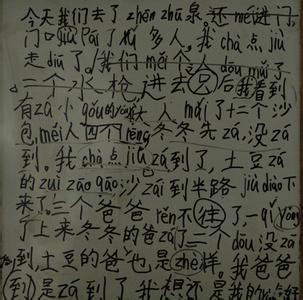 今天我们去了zhēn zhū泉。还méi进门
门口jiù pái了很多人，我chà点jiù
走diū了。我们měi个人dōu mǎi了
一个水枪进去 只后我看到
有zá小gǒu的 大人 mǎi了十二个沙
包，měi人四个rēng 冬冬先zá，没zá
到。我chà点jiù zá到了，土豆zá
的zuì zāo gāo 沙zài到半路jiù diào下
来了。三个爸爸rěn不住了一qǐ yòng
了上来冬冬的爸zá了三个dōu没zá
到，土豆的爸爸也是zhè样。我爸爸
到是zá到了我想还是我的